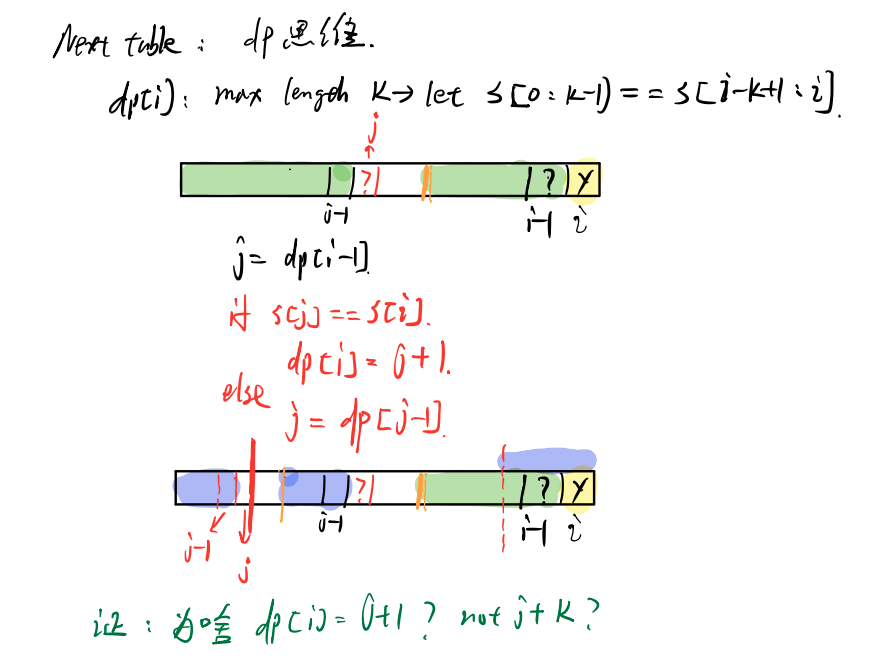 Next table : dp思维.
dp[i] : max length k → let s[0:k-1] == s[i-k+1:i].
j
? ? Y
j-1 i-1 i
j = dp[i-1]
if s[j] == s[i].
dp[i] = j+1.
else
j = dp[j-1].
? ? Y
j-1 i-1 i
j-1
j
证 : 为啥 dp[i] = j+1 ? not j+k ?